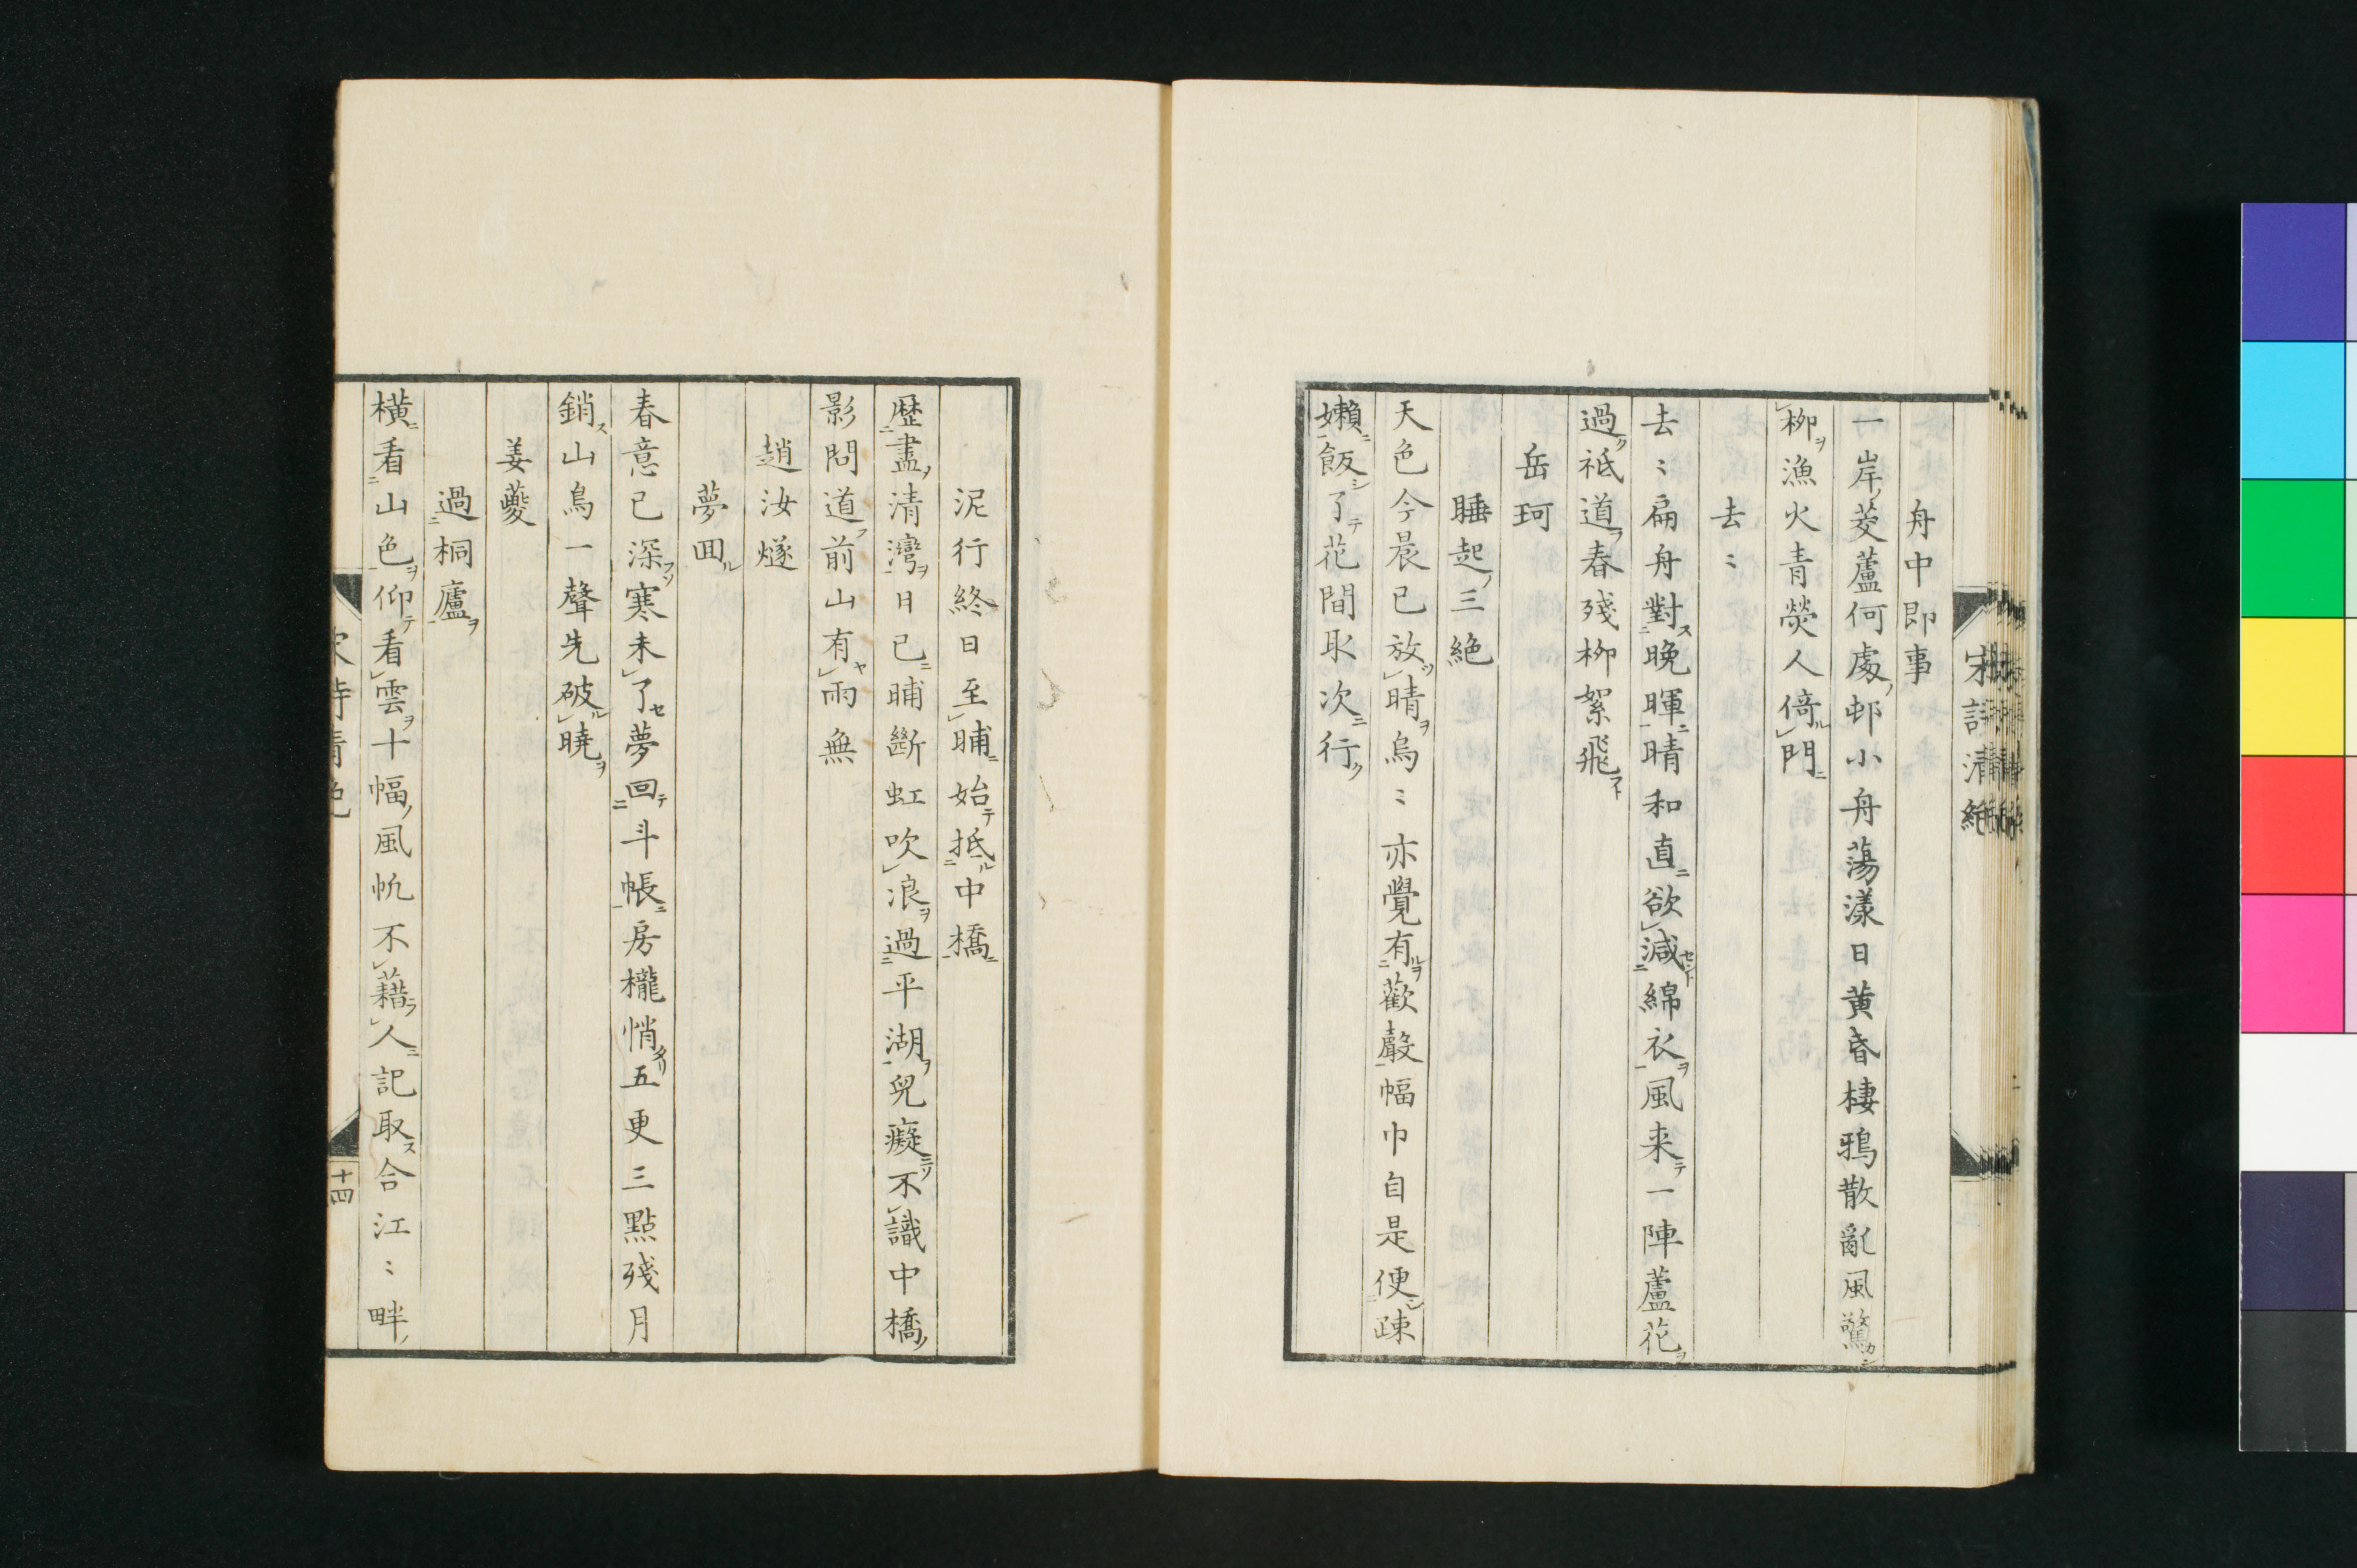 宋詩清絶
舟中即事
一岸菱蘆何處邨小舟蕩漾日黄昏棲鴉散亂風驚
柳漁火青熒人倚門
去〻
去〻扁舟對晩暉晴和直欲減綿衣風来一陣蘆花
過祗道春殘柳絮飛
岳珂
睡起三絶
天色今晨已放晴烏〻亦覺有歡聲幅巾自是便疎
嬾飯了花間取次行
泥行終日至晡始抵中橋
歴盡清灣日已晡斷虹吹浪過平湖兒癡不識中橋
影問道前山有雨無
趙汝燧
夢回
春意已深寒未了夢回斗帳房櫳悄五更三點殘月
銷山鳥一聲先破曉
姜夔
過桐廬
橫看山色仰看雲十幅風帆不藉人記取合江〻畔
十四